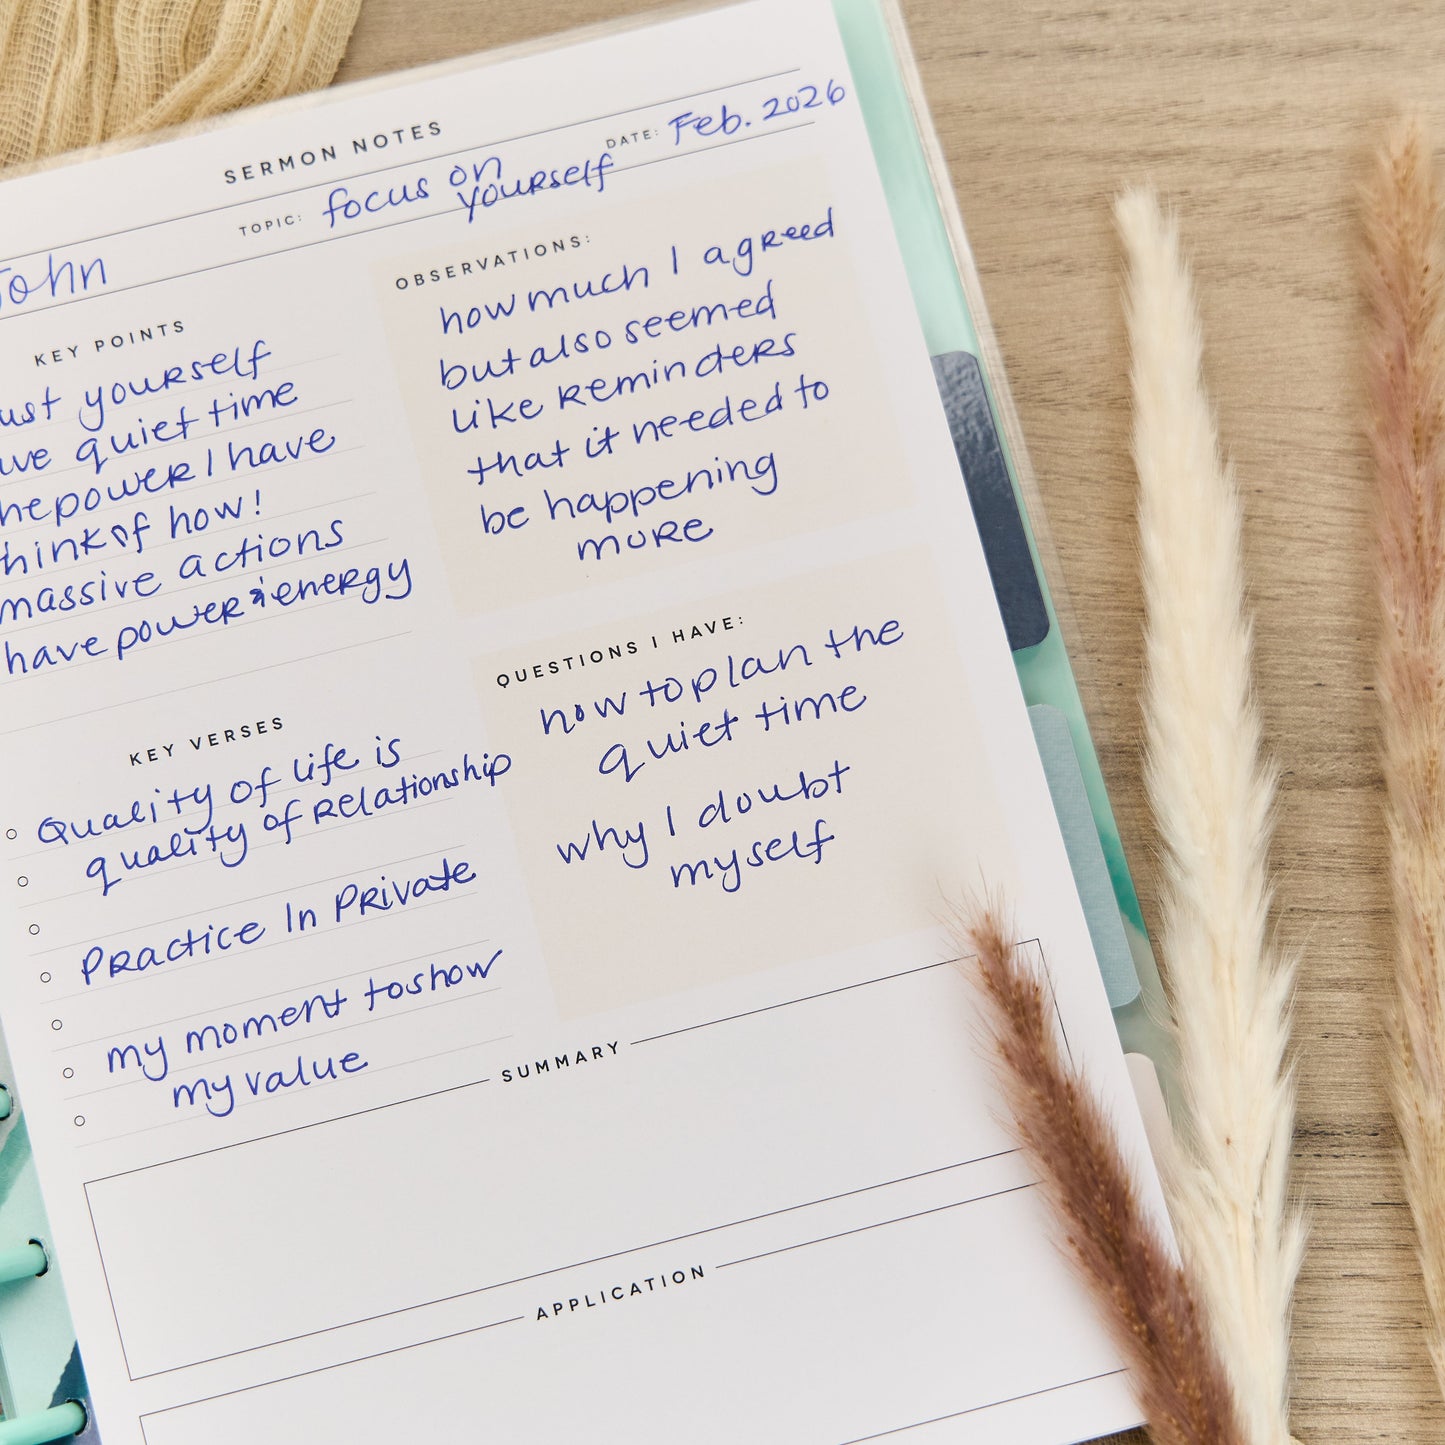 SERMON NOTES
DATE: Feb. 2026
TOPIC: focus on
yourself
John
KEY POINTS
ust yourself
ve quiet time
he power I have
hink of how!
massive actions
have power & energy
OBSERVATIONS:
how much I agreed
but also seemed
like reminders
that it needed to
be happening
more
QUESTIONS I HAVE:
how to plan the
quiet time
why I doubt
myself
KEY VERSES
Quality of life is
quality of relationship
Practice In Private
my moment to show
my value
SUMMARY
APPLICATION